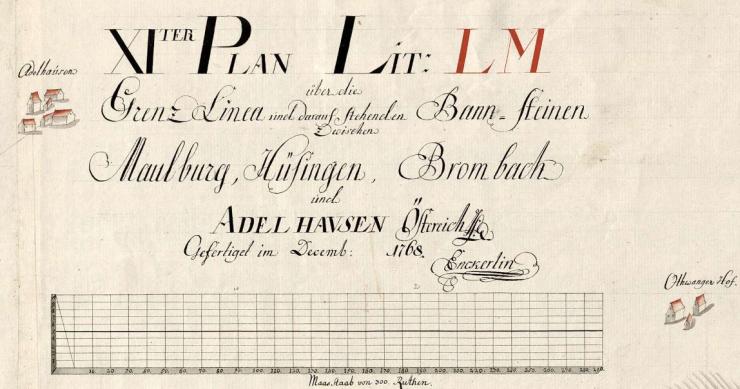 XI TER PLAN LIT: LM
Adelhausen
über die
Grenz Linea und darauf stehenden Bann-steinen
Zwischen
Maulburg, Hüsingen, Brombach
und
ADELHAVSEN Östereich
Gefertiget im Decemb: 1768.
Enckerlin
Othwanger Hof.
10. 20. 30. 40. 50. 60. 70. 80. 90. 100. 110. 120. 130. 140. 150. 160. 170. 180. 190. 200. 210. 220. 230. 240.
Maas, staab von 300. Ruthen.